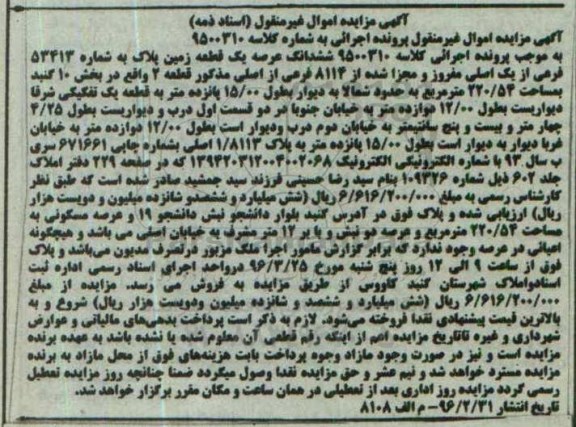 آگهی مزایده اموال غیرمنقول (اسناد ذمه)
آگهی مزایده اموال غیرمنقول پرونده اجرائی به شماره کلاسه ۹۵۰۰۳۱۰
به موجب پرونده اجرائی کلاسه ۹۵۰۰۳۱۰ ششدانگ عرصه یک قطعه زمین پلاک به شماره ۵۳۴۱۳
فرعی از یک اصلی مفروز و مجزا شده از ۸۱۱۴ فرعی از اصلی مذکور قطعه ۲ واقع در بخش ۱۰ گنبد
بمساحت ۲۲۰/۵۴ مترمربع به حدود شمالا به دیوار بطول ۱۵/۰۰ پانزده متر به قطعه یک تفکیکی شرقا
دیواریست بطول ۱۲/۰۰ دوازده متر به خیابان جنوبا در دو قسمت اول درب و دیواریست بطول ۴/۲۵
چهار متر و بیست و پنج سانتیمتر به خیابان دوم درب ودیوار است بطول ۱۲/۰۰ دوازده متر به خیابان
غربا دیوار به دیوار است بطول ۱۵/۰۰ پانزده متر به پلاک ۱/۸۱۱۳ اصلی بشماره چاپی ۶۷۱۶۶۱ سری
ب سال ۹۳ با شماره الکترونیکی الکترونیک ۱۳۹۴۲۰۳۱۲۰۰۴۰۰۲۰۶۸ که در صفحه ۲۲۹ دفتر املاک
جلد ۶۰۲ ذیل شماره ۱۰۹۳۲۶ بنام سید رضا حسینی فرزند سید جمشید صادر شده است که طبق نظر
کارشناس رسمی به مبلغ ۶/۶۱۶/۲۰۰/۰۰۰ ریال (شش میلیارد و ششصدو شانزده میلیون و دویست هزار
ریال) ارزیابی شده و پلاک فوق در آدرس گنبد بلوار دانشجو نبش دانشجو ۱۹ و عرصه مسکونی به
مساحت ۲۲۰/۵۴ مترمربع و عرصه دو نبش و با بر ۱۲ متر مشرف به خیابان اصلی می باشد و هیچگونه
اعیانی در عرصه وجود ندارد که برابر گزارش مامور اجرا ملک مزبور درتصرف مدیون می‌باشد و پلاک
فوق از ساعت ۹ الی ۱۲ روز پنج شنبه مورخ ۹۶/۳/۲۵ درواحد اجرای اسناد رسمی اداره ثبت
اسنادواملاک شهرستان گنبد کاووس از طریق مزایده به فروش می رسد. مزایده از مبلغ
۶/۶۱۶/۲۰۰/۰۰۰ ریال (شش میلیارد و ششصد و شانزده میلیون ودویست هزار ریال) شروع و به
بالاترین قیمت پیشنهادی نقدا فروخته می‌شود. لازم به ذکر است پرداخت بدهی‌های مالیاتی و عوارض
شهرداری و غیره تاتاریخ مزایده اعم از اینکه رقم قطعی آن معلوم شده یا نشده باشد به عهده برنده
مزایده است و نیز در صورت وجود مازاد وجوه پرداخت بابت هزینه‌های فوق از محل مازاد به برنده
مزایده مسترد خواهد شد و نیم عشر و حق مزایده نقدا وصول میگردد ضمنا چنانچه روز مزایده تعطیل
رسمی گردد مزایده روز اداری بعد از تعطیلی در همان ساعت و مکان مقرر برگزار خواهد شد.
تاریخ انتشار ۹۶/۲/۳۱- م الف ۸۱۰۸